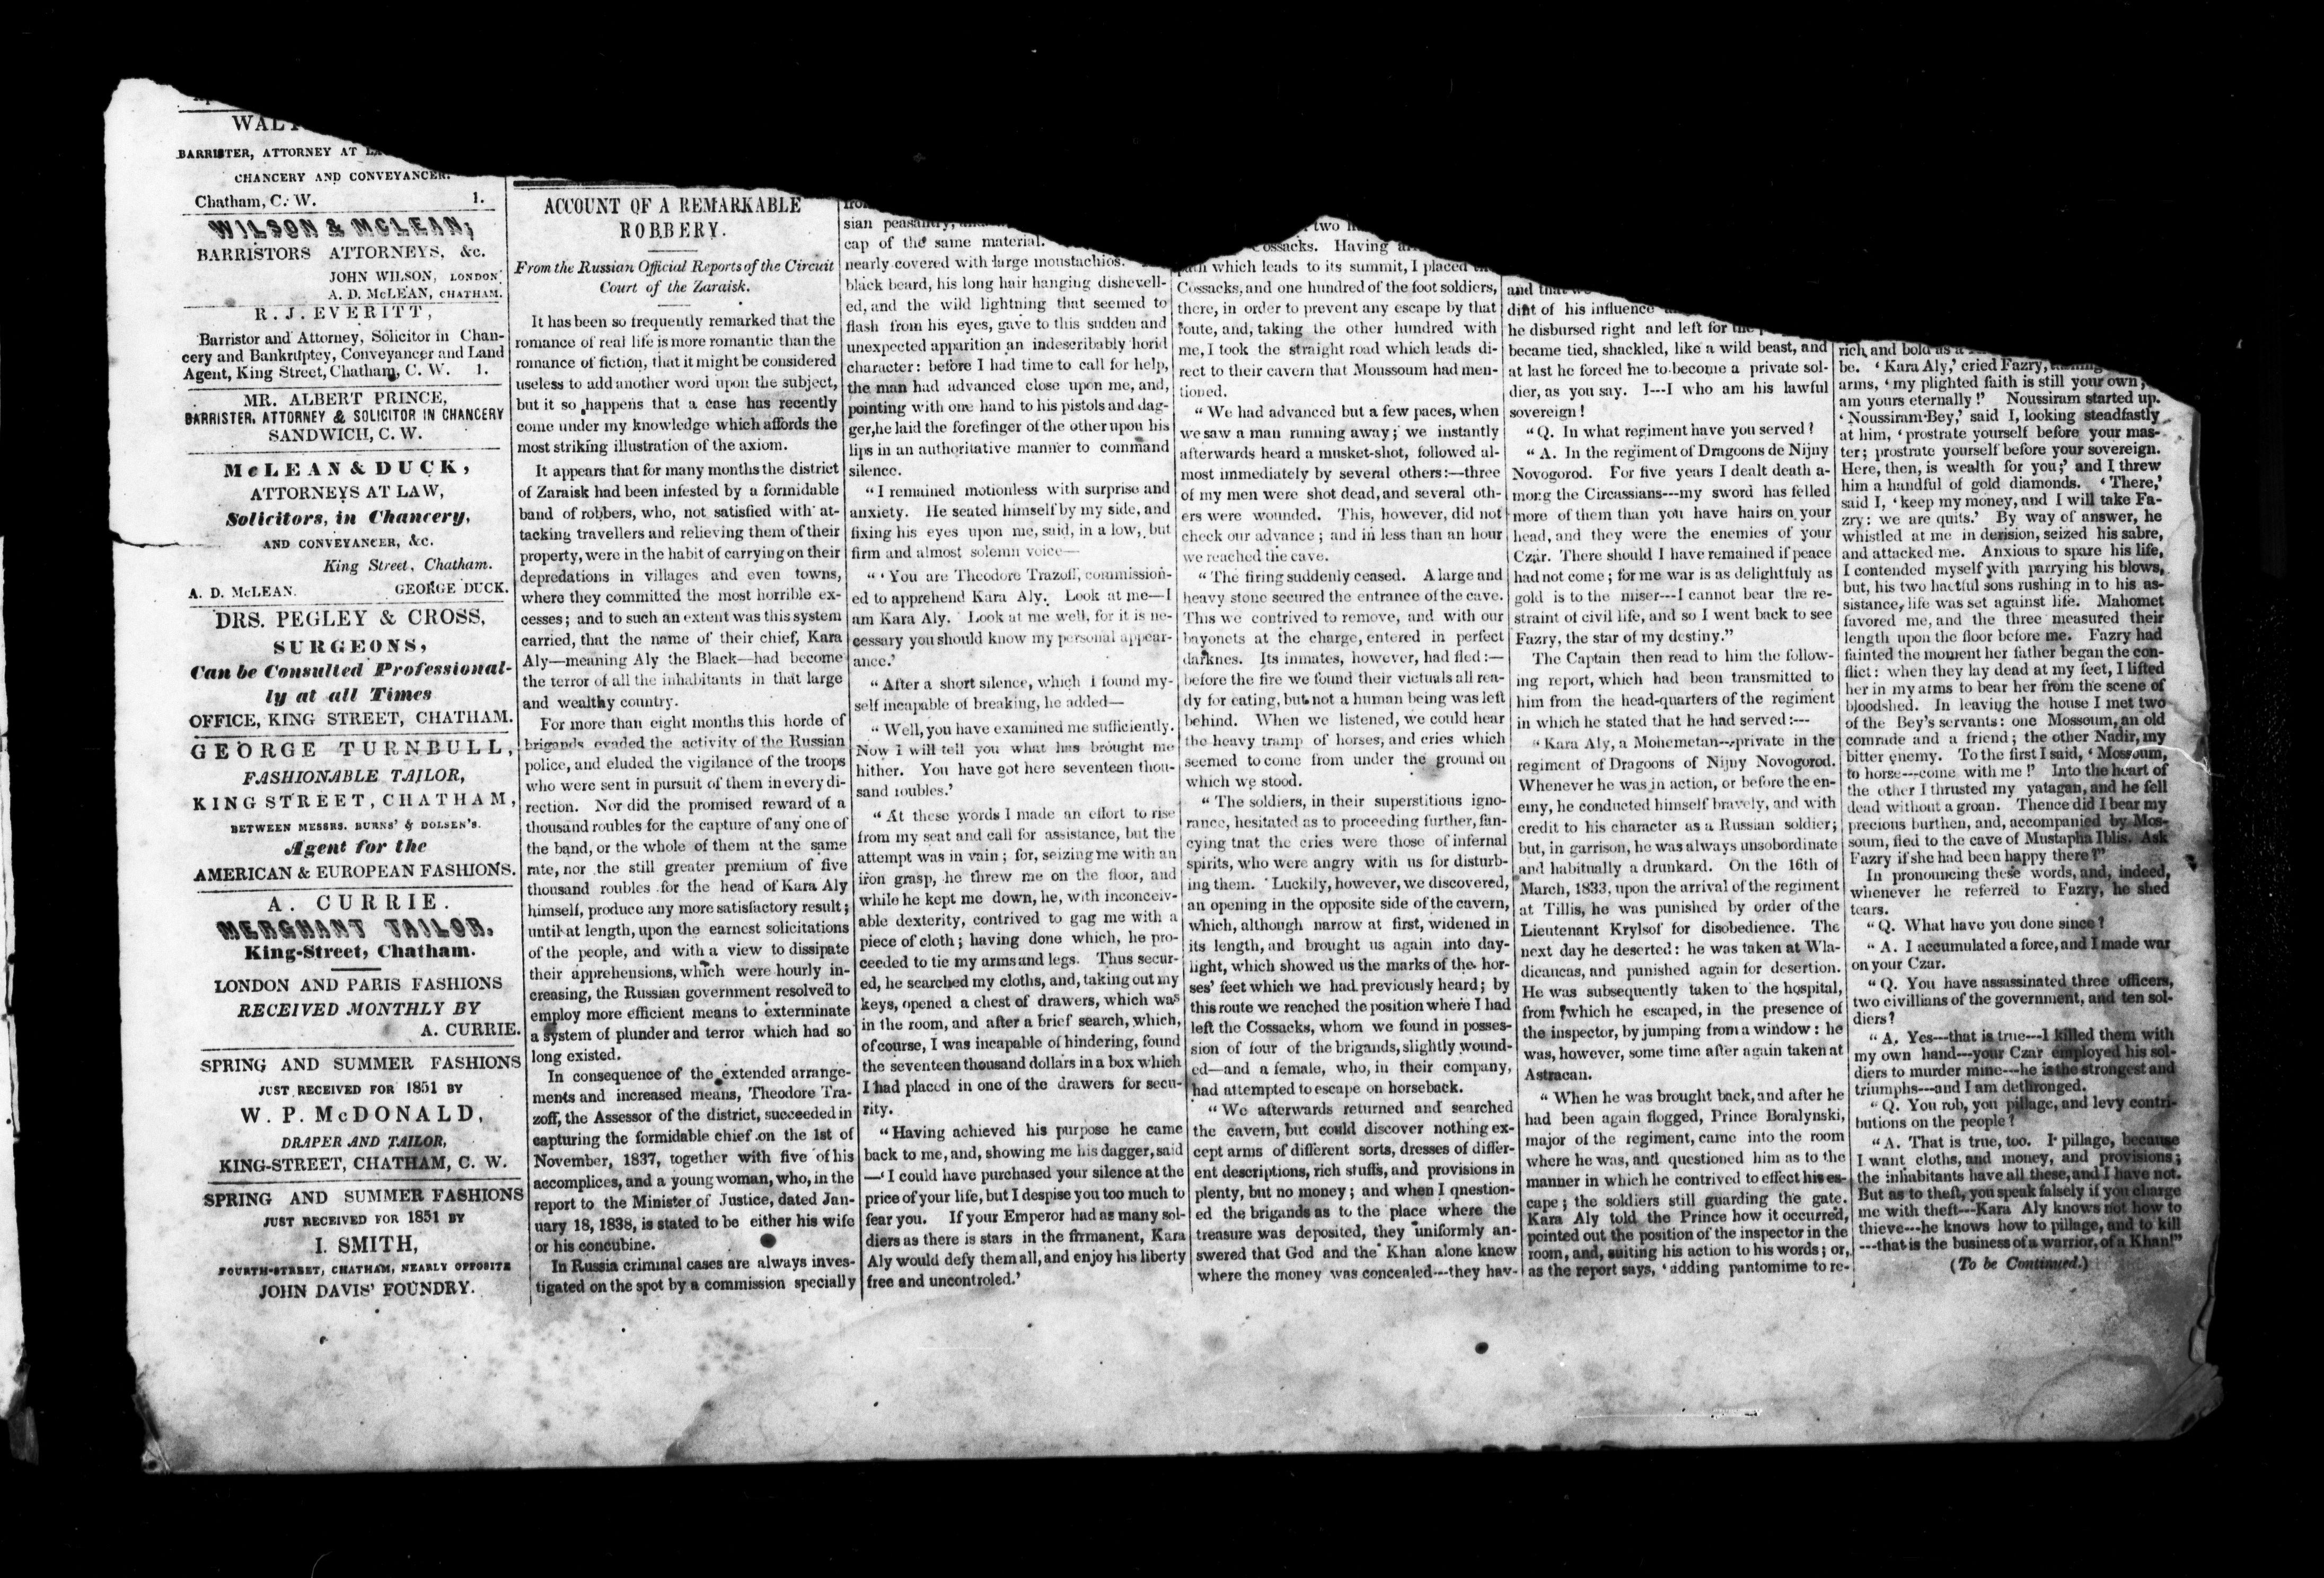 BARRISTER, ATTORNEY AT
CHANCERY AND CONVEYANCER.
Chatham, C. W. 1.
WILSON & McLEAN,
BARRISTORS ATTORNEYS, &c.
JOHN WILSON, LONDON
A. D. McLEAN, CHATHAM.
R. J. EVERITT,
Barristor and Attorney, Solicitor in Chan-
cery and Bankruptcy, Conveyancer and Land
Agent, King Street, Chatham, C. W. 1.
MR. ALBERT PRINCE,
BARRISTER, ATTORNEY & SOLICITOR IN CHANCERY
SANDWICH, C. W.
McLEAN & DUCK,
ATTORNEYS AT LAW,
Solicitors, in Chancery,
AND CONVEYANCER, &c.
King Street, Chatham.
A. D. McLEAN. GEORGE DUCK.
DRS. PEGLEY & CROSS,
SURGEONS,
Can be Consulted Professional-
ly at all Times
OFFICE, KING STREET, CHATHAM.
GEORGE TURNBULL,
FASHIONABLE TAILOR,
KING STREET, CHATHAM,
BETWEEN MESSRS. BURNS' & DOLSEN'S.
Agent for the
AMERICAN & EUROPEAN FASHIONS.
A. CURRIE.
MERCHANT TAILOR,
King-Street, Chatham.
LONDON AND PARIS FASHIONS
RECEIVED MONTHLY BY
A. CURRIE.
SPRING AND SUMMER FASHIONS
JUST RECEIVED FOR 1851 BY
W. P. McDONALD,
DRAPER AND TAILOR,
KING-STREET, CHATHAM, C. W.
SPRING AND SUMMER FASHIONS
JUST RECEIVED FOR 1851 BY
I. SMITH,
FOURTH-STREET, CHATHAM, NEARLY OPPOSITE
JOHN DAVIS' FOUNDRY.
ACCOUNT OF A REMARKABLE
ROBBERY.
From the Russian Official Reports of the Circuit
Court of the Zaraisk.
It has been so frequently remarked that the
romance of real life is more romantic than the
romance of fiction, that it might be considered
useless to add another word upon the subject,
but it so happens that a case has recently
come under my knowledge which affords the
most striking illustration of the axiom.
It appears that for many months the district
of Zaraisk had been infested by a formidable
band of robbers, who, not satisfied with at-
tacking travellers and relieving them of their
property, were in the habit of carrying on their
depredations in villages and even towns,
where they committed the most horrible ex-
cesses; and to such an extent was this system
carried, that the name of their chief, Kara
Aly—meaning Aly the Black—had become
the terror of all the inhabitants in that large
and wealthy country.
For more than eight months this horde of
brigands evaded the activity of the Russian
police, and eluded the vigilance of the troops
who were sent in pursuit of them in every di-
rection. Nor did the promised reward of a
thousand roubles for the capture of any one of
the band, or the whole of them at the same
rate, nor the still greater premium of five
thousand roubles for the head of Kara Aly
himself, produce any more satisfactory result;
until at length, upon the earnest solicitations
of the people, and with a view to dissipate
their apprehensions, which were hourly in-
creasing, the Russian government resolved to
employ more efficient means to exterminate
a system of plunder and terror which had so
long existed.
In consequence of the extended arrange-
ments and increased means, Theodore Tra-
zoff, the Assessor of the district, succeeded in
capturing the formidable chief on the 1st of
November, 1837, together with five of his
accomplices, and a young woman, who, in the
report to the Minister of Justice, dated Jan-
uary 18, 1838, is stated to be either his wife
or his concubine.
In Russia criminal cases are always inves-
tigated on the spot by a commission specially
sian
cap of the same material.
nearly covered with large moustachios.
black beard, his long hair hanging dishevell-
ed, and the wild lightning that seemed to
flash from his eyes, gave to this sudden and
unexpected apparition an indescribably horid
character: before I had time to call for help,
the man had advanced close upon me, and,
pointing with one hand to his pistols and dag-
ger, he laid the forefinger of the other upon his
lips in an authoritative manner to command
silence.
"I remained motionless with surprise and
anxiety. He seated himself by my side, and
fixing his eyes upon me, said, in a low, but
firm and almost solemn voice—
"'You are Theodore Trazoff, commission-
ed to apprehend Kara Aly. Look at me—I
am Kara Aly. Look at me well, for it is ne-
cessary you should know my personal appear-
ance.'
"After a short silence, which I found my-
self incapable of breaking, he added—
"Well, you have examined me sufficiently.
Now I will tell you what has brought me
hither. You have got here seventeen thou-
sand roubles.'
"At these words I made an effort to rise
from my seat and call for assistance, but the
attempt was in vain; for, seizing me with an
iron grasp, he threw me on the floor, and
while he kept me down, he, with inconceiv-
able dexterity, contrived to gag me with a
piece of cloth; having done which, he pro-
ceeded to tie my arms and legs. Thus secur-
ed, he searched my cloths, and, taking out my
keys, opened a chest of drawers, which was
in the room, and after a brief search, which,
of course, I was incapable of hindering, found
the seventeen thousand dollars in a box which
I had placed in one of the drawers for secu-
rity.
"Having achieved his purpose he came
back to me, and, showing me his dagger, said
—'I could have purchased your silence at the
price of your life, but I despise you too much to
fear you. If your Emperor had as many sol-
diers as there is stars in the firmanent, Kara
Aly would defy them all, and enjoy his liberty
free and uncontroled.'
two
Cossacks. Having
which leads to its summit, I placed
Cossacks, and one hundred of the foot soldiers,
there, in order to prevent any escape by that
route, and, taking the other hundred with
me, I took the straight road which leads di-
rect to their cavern that Moussoum had men-
tioned.
"We had advanced but a few paces, when
we saw a man running away; we instantly
afterwards heard a musket-shot, followed al-
most immediately by several others:—three
of my men were shot dead, and several oth-
ers were wounded. This, however, did not
check our advance; and in less than an hour
we reached the cave.
"The firing suddenly ceased. A large and
heavy stone secured the entrance of the cave.
This we contrived to remove, and with our
bayonets at the charge, entered in perfect
darknes. Its inmates, however, had fled:—
before the fire we found their victuals all rea-
dy for eating, but not a human being was left
behind. When we listened, we could hear
the heavy tramp of horses, and cries which
seemed to come from under the ground on
which we stood.
"The soldiers, in their superstitious igno-
rance, hesitated as to proceeding further, fan-
cying tnat the cries were those of infernal
spirits, who were angry with us for disturb-
ing them. Luckily, however, we discovered,
an opening in the opposite side of the cavern,
which, although narrow at first, widened in
its length, and brought us again into day-
light, which showed us the marks of the hor-
ses' feet which we had previously heard; by
this route we reached the position where I had
left the Cossacks, whom we found in posses-
sion of four of the brigands, slightly wound-
ed—and a female, who, in their company,
had attempted to escape on horseback.
"We afterwards returned and searched
the cavern, but could discover nothing ex-
cept arms of different sorts, dresses of differ-
ent descriptions, rich stuffs, and provisions in
plenty, but no money; and when I qnestion-
ed the brigands as to the place where the
treasure was deposited, they uniformly an-
swered that God and the Khan alone knew
where the money was concealed---they hav-
and that we
dint of his influence
he disbursed right and left for the
became tied, shackled, like a wild beast, and
at last he forced me to become a private sol-
dier, as you say. I---I who am his lawful
sovereign!
"Q. In what regiment have you served?
"A. In the regiment of Dragoons de Nijny
Novogorod. For five years I dealt death a-
mong the Circassians---my sword has felled
more of them than you have hairs on your
head, and they were the enemies of your
Czar. There should I have remained if peace
had not come; for me war is as delightfuly as
gold is to the miser---I cannot bear the re-
straint of civil life, and so I went back to see
Fazry, the star of my destiny."
The Captain then read to him the follow-
ing report, which had been transmitted to
him from the head-quarters of the regiment
in which he stated that he had served:---
"Kara Aly, a Mohemetan---private in the
regiment of Dragoons of Nijny Novogorod.
Whenever he was in action, or before the en-
emy, he conducted himself bravely, and with
credit to his character as a Russian soldier;
but, in garrison, he was always unsobordinate
and habitually a drunkard. On the 16th of
March, 1833, upon the arrival of the regiment
at Tillis, he was punished by order of the
Lieutenant Krylsof for disobedience. The
next day he deserted: he was taken at Wla-
dicaucas, and punished again for desertion.
He was subsequently taken to the hospital,
from which he escaped, in the presence of
the inspector, by jumping from a window: he
was, however, some time after again taken at
Astracan.
"When he was brought back, and after he
had been again flogged, Prince Boralynski,
major of the regiment, came into the room
where he was, and questioned him as to the
manner in which he contrived to effect his es-
cape; the soldiers still guarding the gate.
Kara Aly told the Prince how it occurred,
pointed out the position of the inspector in the
room, and, suiting his action to his words; or,
as the report says, 'adding pantomime to re-
rich and bold as a
be. 'Kara Aly,' cried Fazry,
arms, 'my plighted faith is still your own,
am yours eternally!' Noussiram started up.
'Noussiram Bey,' said I, looking steadfastly
at him, 'prostrate yourself before your mas-
ter; prostrate yourself before your sovereign.
Here, then, is wealth for you;' and I threw
him a handful of gold diamonds. 'There,'
said I, 'keep my money, and I will take Fa-
zry: we are quits.' By way of answer, he
whistled at me in derision, seized his sabre,
and attacked me. Anxious to spare his life,
I contended myself with parrying his blows,
but, his two hactful sons rushing in to his as-
sistance, life was set against life. Mahomet
favored me, and the three measured their
length upon the floor before me. Fazry had
fainted the moment her father began the con-
flict: when they lay dead at my feet, I lifted
her in my arms to bear her from the scene of
bloodshed. In leaving the house I met two
of the Bey's servants: one Mossoum, an old
comrade and a friend; the other Nadir, my
bitter enemy. To the first I said, 'Mossoum,
to horse---come with me!' Into the heart of
the other I thrusted my yatagan, and he fell
dead without a groan. Thence did I bear my
precious burthen, and, accompanied by Mos-
soum, fled to the cave of Mustapha Iblis. Ask
Fazry if she had been happy there?"
In pronouncing these words, and, indeed,
whenever he referred to Fazry, he shed
tears.
"Q. What have you done since?
"A. I accumulated a force, and I made war
on your Czar.
"Q. You have assassinated three officers,
two civillians of the government, and ten sol-
diers?
"A. Yes---that is true---I killed them with
my own hand---your Czar employed his sol-
diers to murder mine---he is the strongest and
triumphs---and I am dethronged.
"Q. You rob, you pillage, and levy contri-
butions on the people?
"A. That is true, too. I pillage, because
I want cloths, and money, and provisions;
the inhabitants have all these, and I have not.
But as to theft, you speak falsely if you charge
me with theft---Kara Aly knows not how to
thieve---he knows how to pillage, and to kill
---that is the business of a warrior, of a Khan!"
(To be Continued.)